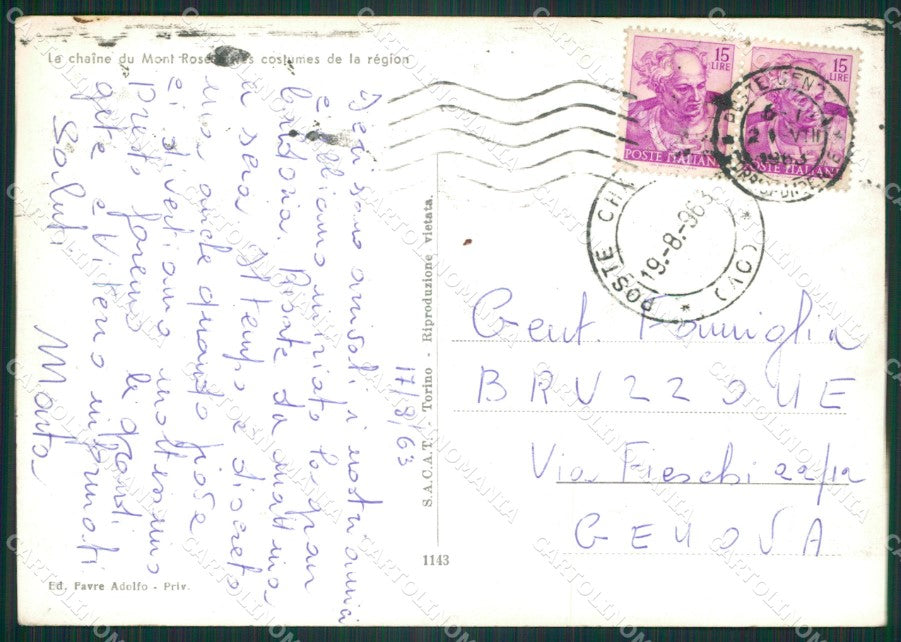 La chaîne du Mont Rose costumes de la région
17/8/63
Ieri sono arrivati i nostri amici
e abbiamo iniziato la gran
baldoria. Risate da mattina
a sera. Il tempo è discreto
ma anche quando piove
ci divertiamo moltissimo
presto faremo le grandi
gite e vi terrò informati
Saluti
Marta
Ed. Favre Adolfo - Priv.
S.A.C.A.T. - Torino - Riproduzione vietata.
1143
15
LIRE
POSTE ITALIANE
15
LIRE
POSTE ITALIANE
POSTE
19.-8.-963
(AO)
Gent. Famiglia
BRUZZONE
Via Fieschi 22/12
GENOVA
CARTOLINOMANIA